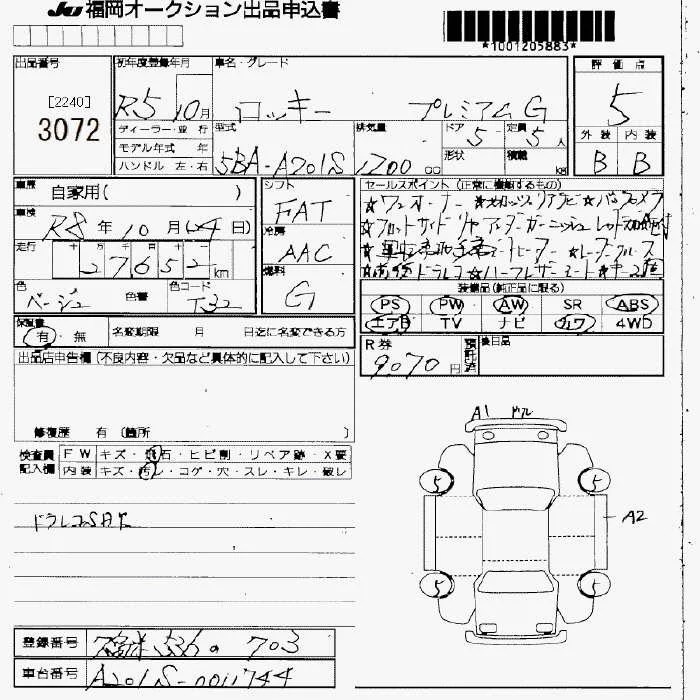 JU 福岡オークション出品申込書
*1001205883*
出品番号 [2240] 3072
初年度登録年月 R5 10月
車名・グレード ロッキー プレミアムG
評価点 5
ディーラー・並行
モデル年式 年
ハンドル 左・右
型式 5BA-A201S
排気量 1200 cc
ドア 5
形状
定員 5人
積載 kg
外装 B 内装 B
車歴 自家用( )
車検 R8年10月(24日)
走行 十万千百十 27652 km
色 ベージュ 色替 色コード T32
シフト FAT
冷房 AAC
燃料 G
セールスポイント (正常に機能するもの)
☆ワンオーナー ☆
☆フロントサイドリヤ
☆ ヒーター ☆
☆ ドラレコ☆
装備品(純正品に限る)
PS PW AW SR ABS
エアB TV ナビ カワ 4WD
保証書 有・無 名変期限 月 日迄に名変できる方
R券 9,070円 預託済
後日品
出品店申告欄(不良内容・欠品など具体的に記入して下さい)
修復歴 有 (箇所 )
検査員記入欄 FW キズ・飛石・ヒビ割・リペア跡・X要
内装 キズ・汚レ・コゲ・穴・スレ・キレ・破レ
ドラレコSAK
A1 ドル
5 5
A2
5 5
登録番号 536 703
車台番号 A201S-0011744